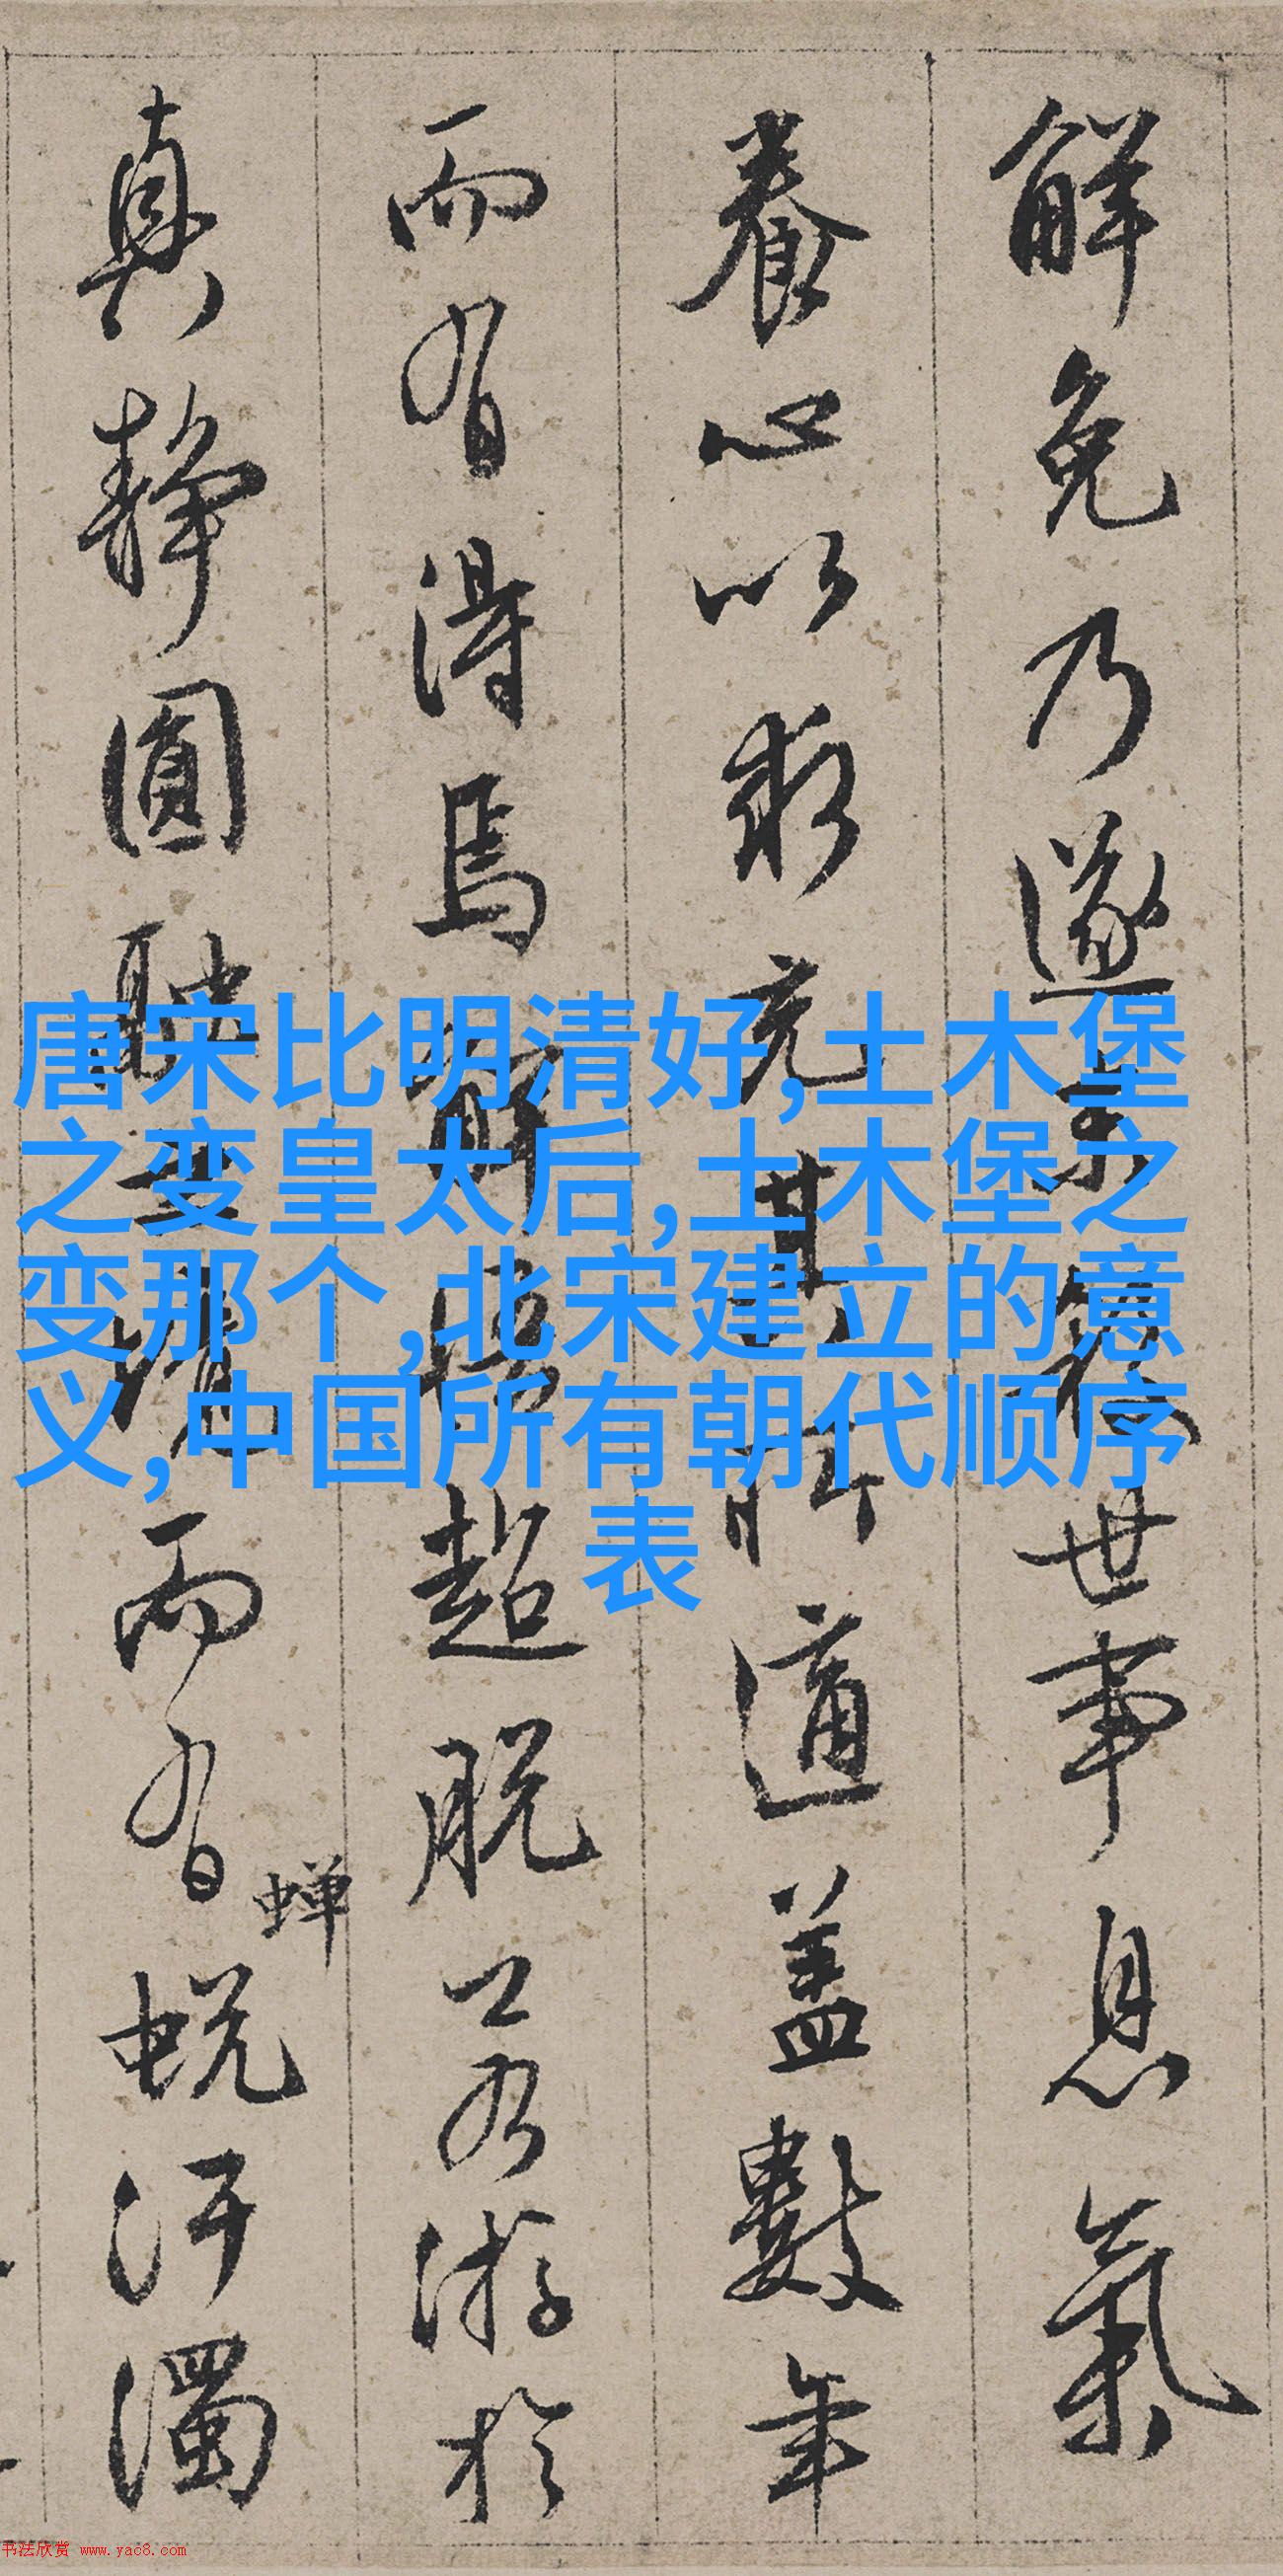 解免乃遂世事息氣
養心以求充其所適蓋數年
而有得焉解超脱游於
真静圓而有蟬蜕汙濁
唐宋比明清好,土木堡
之变皇太后,土木堡之
变那个,北宋建立的意
义,中国所有朝代顺序
表
书法欣赏 www.yac8.com